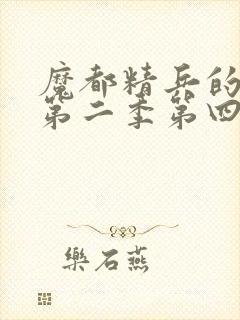 魔都精兵的
第二季第四
樂石燕